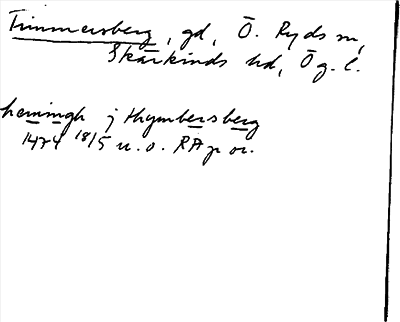 Timmersberg, gd, Ö. Ryds sn,
Skärkinds hd, Ög. l.
heningh j thymbersberg
1474 18/5 u. o. RAp or.